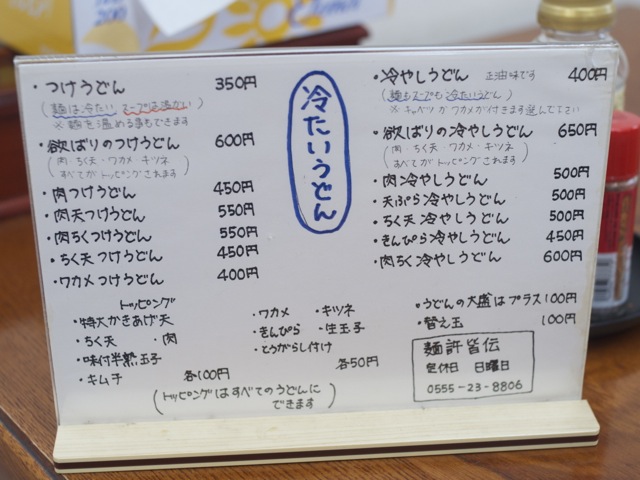 200
冷たいうどん
・つけうどん 350円
(麺は冷たい スープは温かい)
※麺を温める事もできます
・欲ばりのつけうどん 600円
(肉・ちく天・ワカメ・キツネ
すべてがトッピングされます)
・肉つけうどん 450円
・肉天つけうどん 550円
・肉ちくつけうどん 550円
・ちく天つけうどん 450円
・ワカメつけうどん 400円
・冷やしうどん 正油味です 400円
(麺もスープも冷たいうどん)
※キャベツかワカメが付きます選んで下さい
・欲ばりの冷やしうどん 650円
(肉・ちく天・ワカメ・キツネ
すべてがトッピングされます)
・肉冷やしうどん 500円
・天ぷら冷やしうどん 500円
・ちく天冷やしうどん 500円
・きんぴら冷やしうどん 450円
・肉ちく冷やしうどん 600円
トッピング
・特大かきあげ天
・ちく天 ・肉
・味付半熟玉子
・キムチ 各100円
・ワカメ ・キツネ
・きんぴら ・生玉子
・とうがらし付け
各50円
(トッピングはすべてのうどんに
できます)
・うどんの大盛はプラス100円
・替え玉 100円
麺許皆伝
定休日 日曜日
0555-23-8806